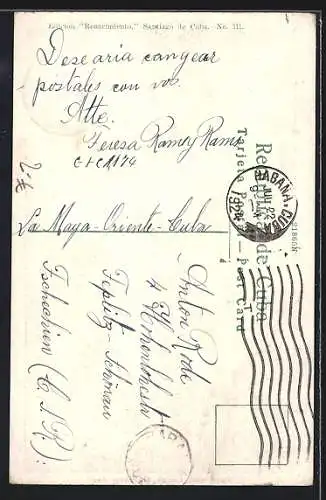 Edicion "Renacimiento," Santiago de Cuba. No. 111.
Desearia canjear
postales con vd.
Atte.
Teresa Ramos y Ramos
La Maya-Oriente-Cuba
República de Cuba
Tarjeta Postal — Post Card
HABANA, CUBA
1924
Anton Rode
4 Hohenlohestr
Teplitz-Schönau
Tschechien (Č.S.R.)